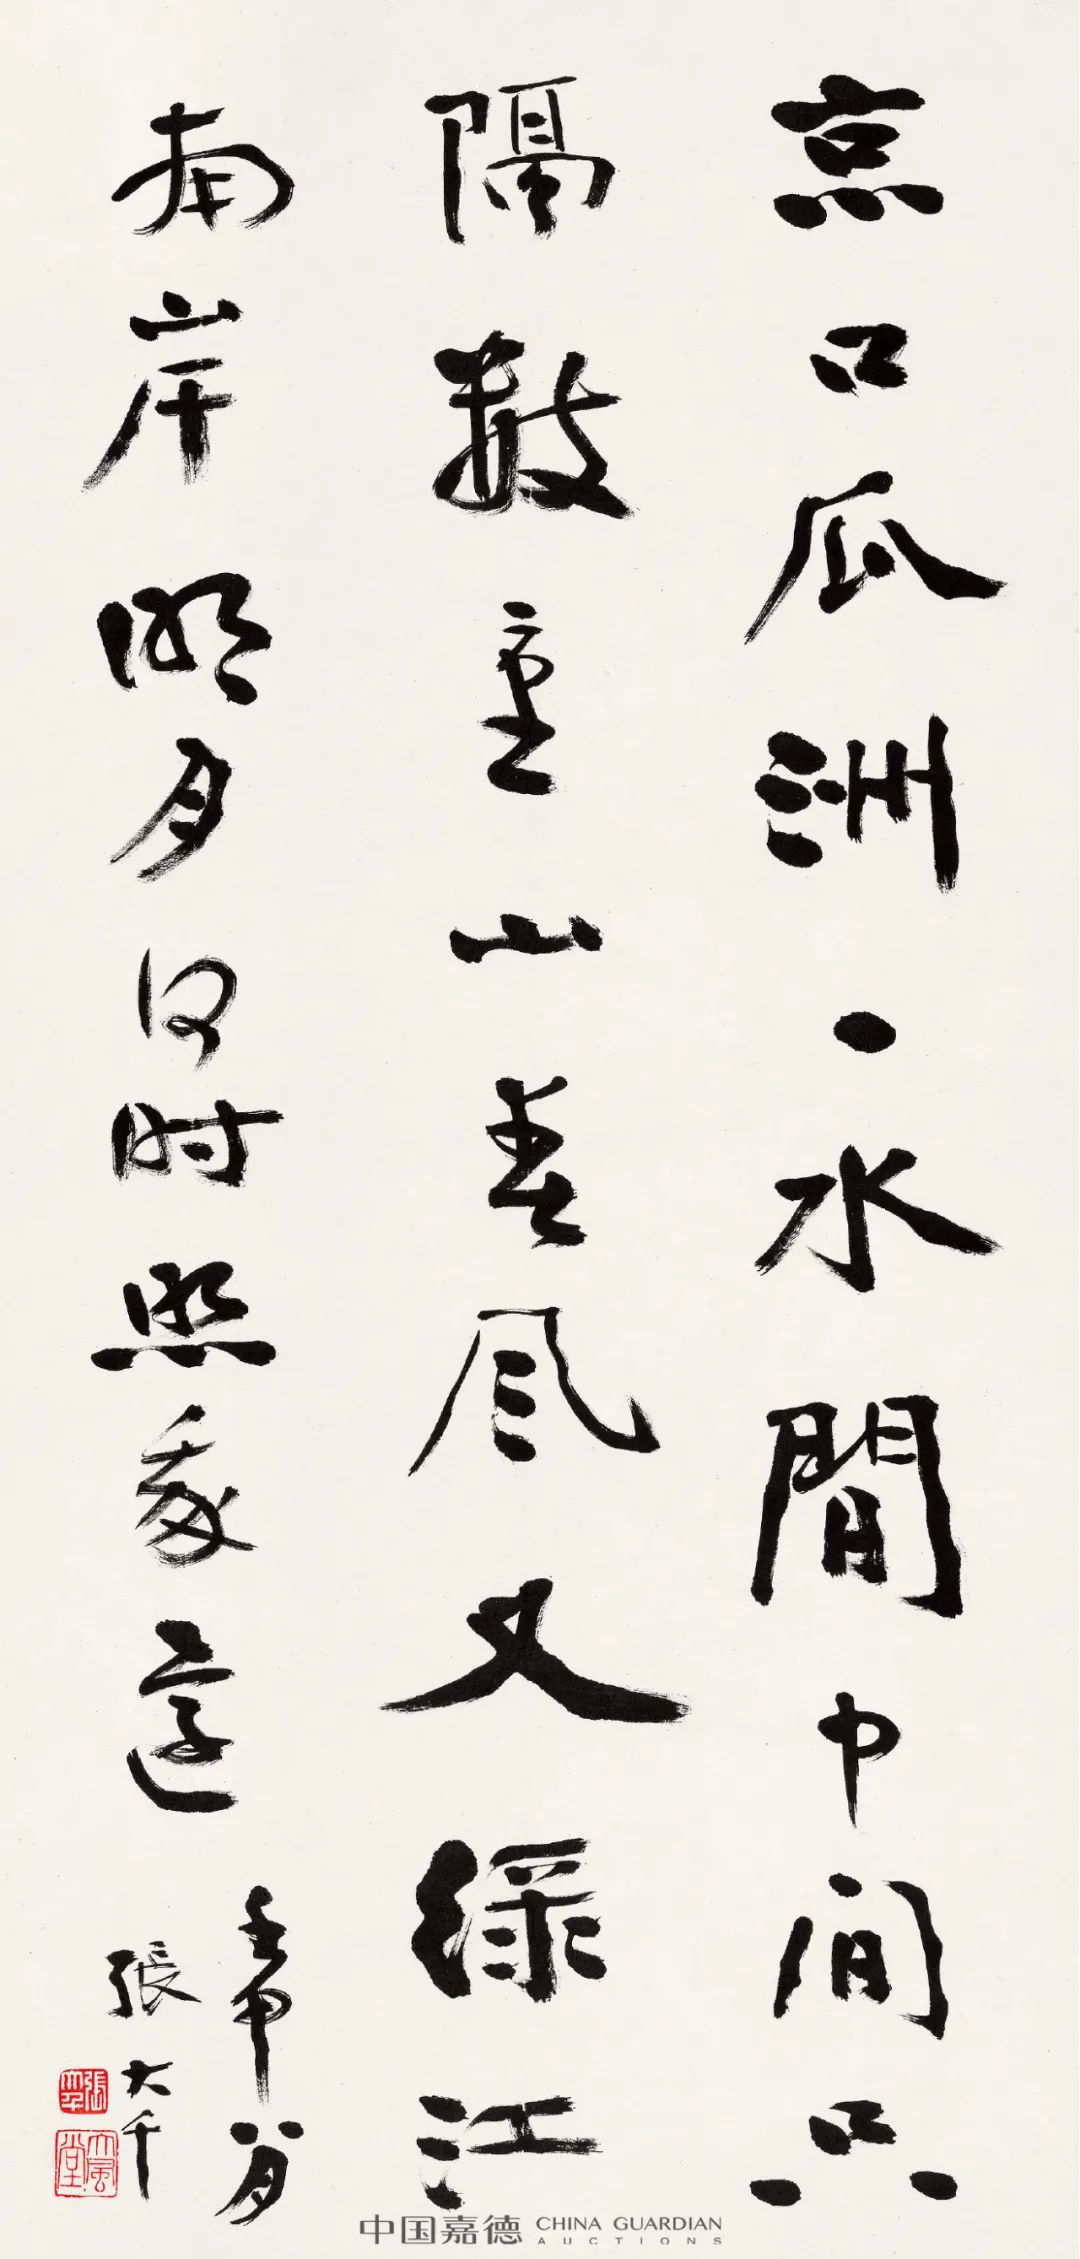 京口瓜洲一水間中间只
隔數重山春風又綠江
南岸明月何时照我還
壬申八月
張大千
張大千
大風堂
中国嘉德 CHINA GUARDIAN AUCTIONS